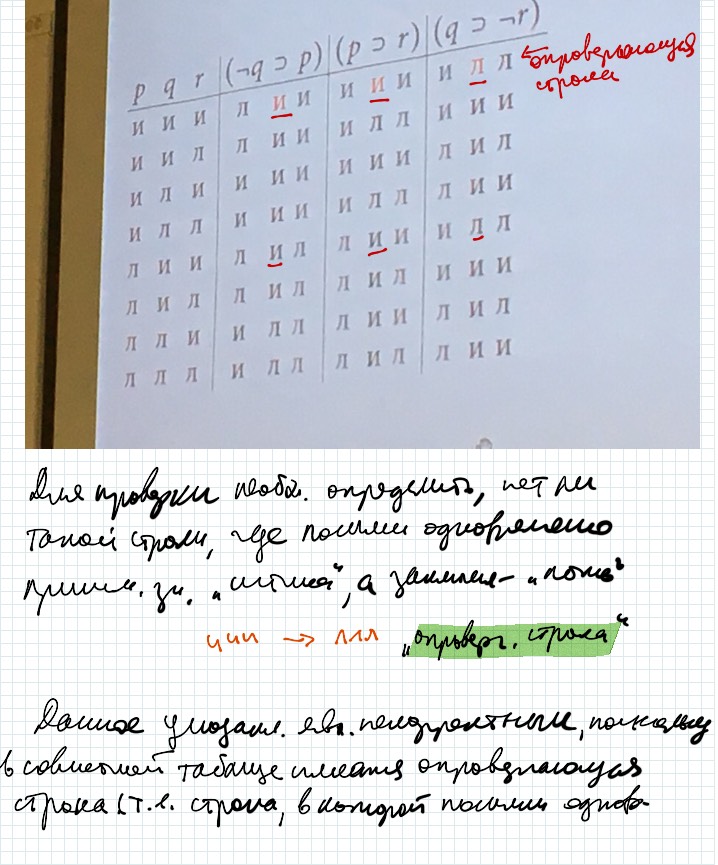 p q r (¬q ⊃ p) (p ⊃ r) (q ⊃ ¬r)
и и и л и и и и и и л л ← опровергающая строка
и и л л и и и л л и и и
и л и и и и и и и л и л
и л л и и и и л л л и и
л и и л и л л и и и л л
л и л л и л л и л и и и
л л и и л л л и и л и л
л л л и л л л и л л и и
Для проверки необх. определить, нет ли
такой строки, где посылки одновременно
приним. зн. „истина", а заключ– „ложь"
иии → ллл „опроверг. строка"
Данное умозакл. явл. некорректным, поскольку
в совместной таблице имеется опровергающая
строка (т.е. строка, в которой посылки однов-